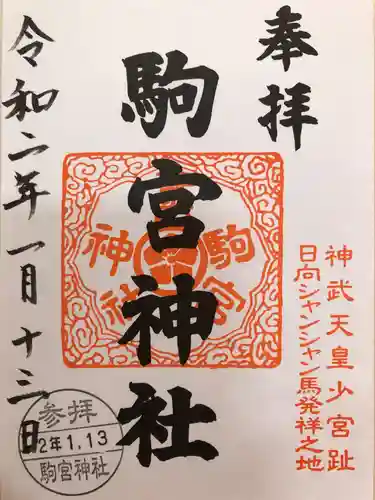 奉拝
駒宮神社
令和二年一月十三日
神武天皇少宮趾
日向シャンシャン馬発祥之地
駒宮神社
参拝
2年1.13
駒宮神社